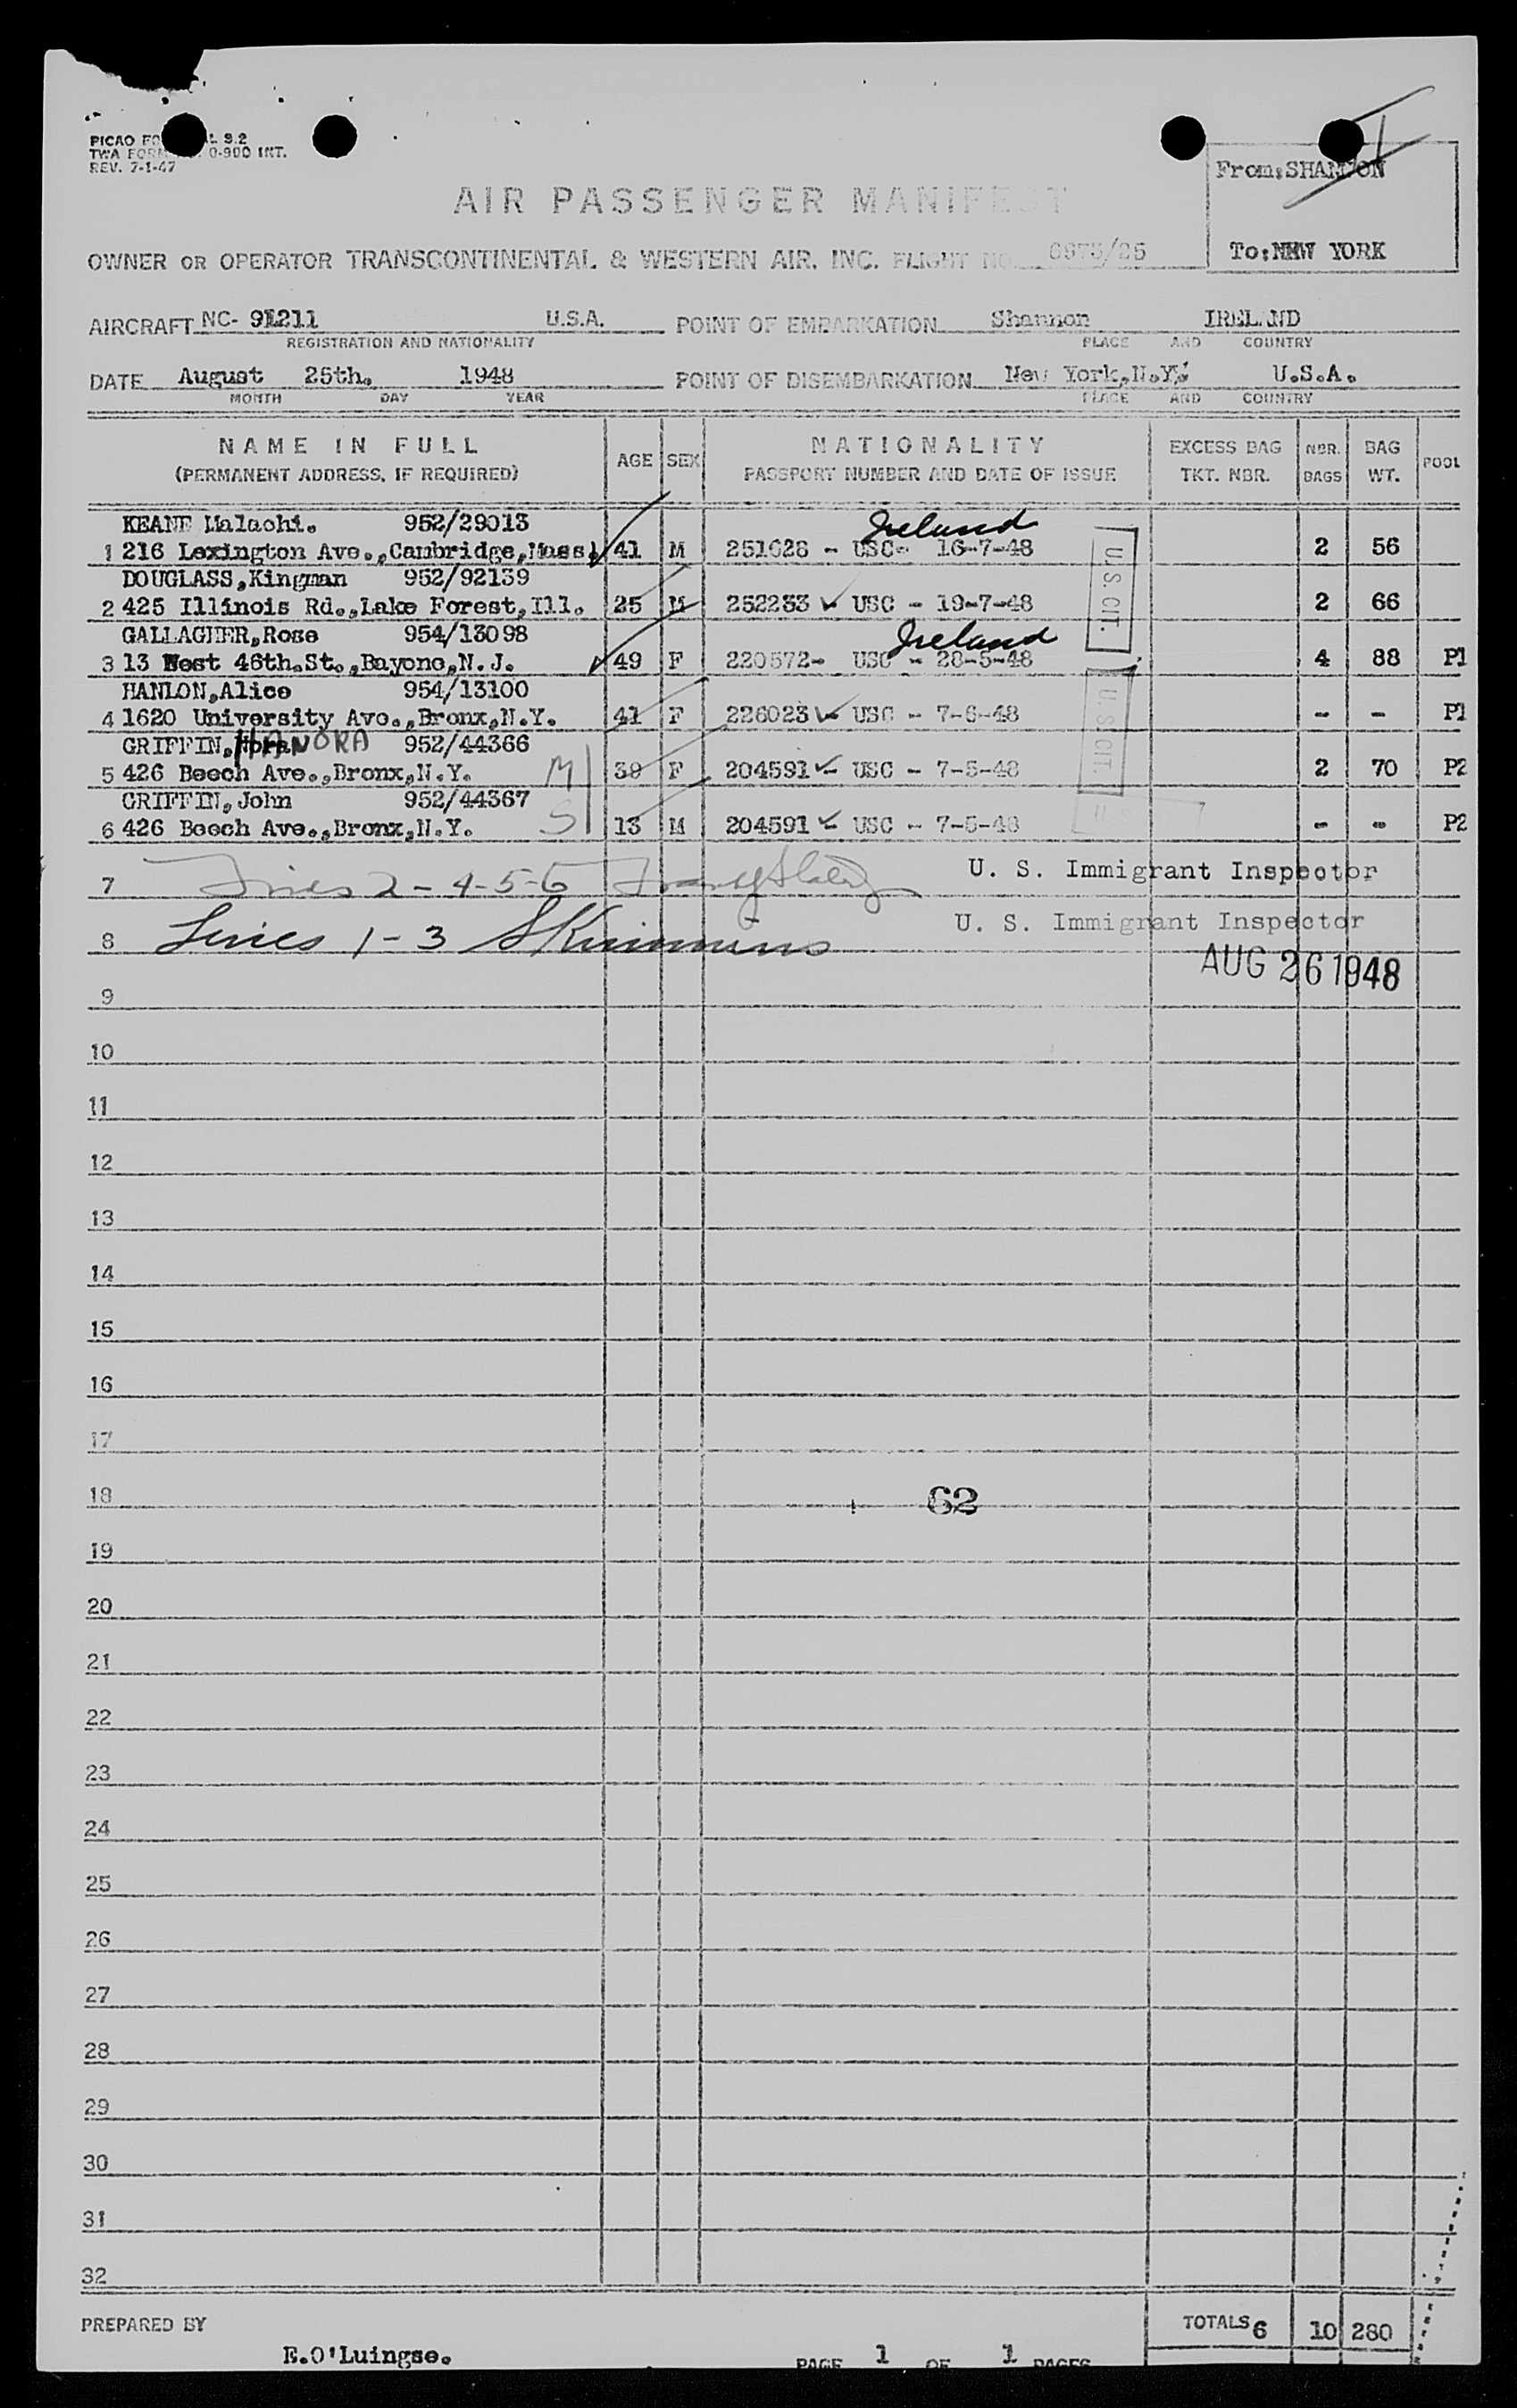 PICAO
TWA FORM 0-900 INT.
REV. 7-1-47
From:SHANNON
To:NEW YORK
AIR PASSENGER MANIFEST
OWNER OR OPERATOR TRANSCONTINENTAL & WESTERN AIR, INC. FLIGHT NO. 6975/25
AIRCRAFT NC- 91211 U.S.A. POINT OF EMBARKATION Shannon IRELAND
REGISTRATION AND NATIONALITY PLACE AND COUNTRY
DATE August 25th. 1948 POINT OF DISEMBARKATION New York,N.Y. U.S.A.
MONTH DAY YEAR PLACE AND COUNTRY
NAME IN FULL (PERMANENT ADDRESS, IF REQUIRED) AGE SEX NATIONALITY PASSPORT NUMBER AND DATE OF ISSUE EXCESS BAG TKT. NBR. NBR. BAGS BAG WT. POOL
KEANE Malachi. 952/29013 Ireland
1 216 Lexington Ave.,Cambridge,Mass. 41 M 251628 - USC- 16-7-48 2 56
DOUGLASS,Kingman 952/92139
2 425 Illinois Rd.,Lake Forest,Ill. 25 M 252233 - USC - 19-7-48 2 66
GALLAGHER,Rose 954/13098 Ireland
3 13 West 46th.St.,Bayone,N.J. 49 F 220572- USC - 28-5-48 4 88 P1
HANLON,Alice 954/13100
4 1620 University Ave.,Bronx,N.Y. 41 F 226023 - USC - 7-6-48 - - P1
GRIFFIN,HANORA 952/44366
5 426 Beech Ave.,Bronx,N.Y. M 39 F 204591 - USC - 7-5-48 2 70 P2
GRIFFIN,John 952/44367
6 426 Beech Ave.,Bronx,N.Y. S 13 M 204591 - USC - 7-5-48 - - P2
U.S. CIT.
U.S. CIT.
7 Lines 2-4-5-6 U. S. Immigrant Inspector
8 Lines 1-3 U. S. Immigrant Inspector
AUG 26 1948
9
10
11
12
13
14
15
16
17
18 62
19
20
21
22
23
24
25
26
27
28
29
30
31
32
PREPARED BY TOTALS 6 10 280
E.O'Luingse. PAGE 1 OF 1 PAGES